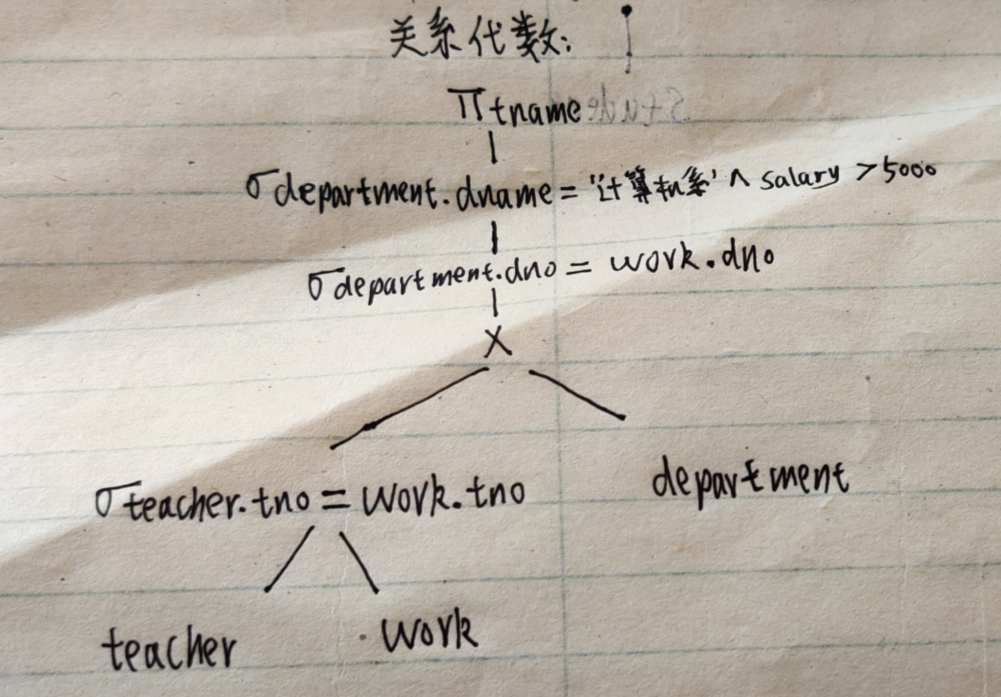 关系代数:
π tname
σ department.dname = "计算机系" ∧ salary > 5000
σ department.dno = work.dno
×
σ teacher.tno = work.tno
department
teacher
work